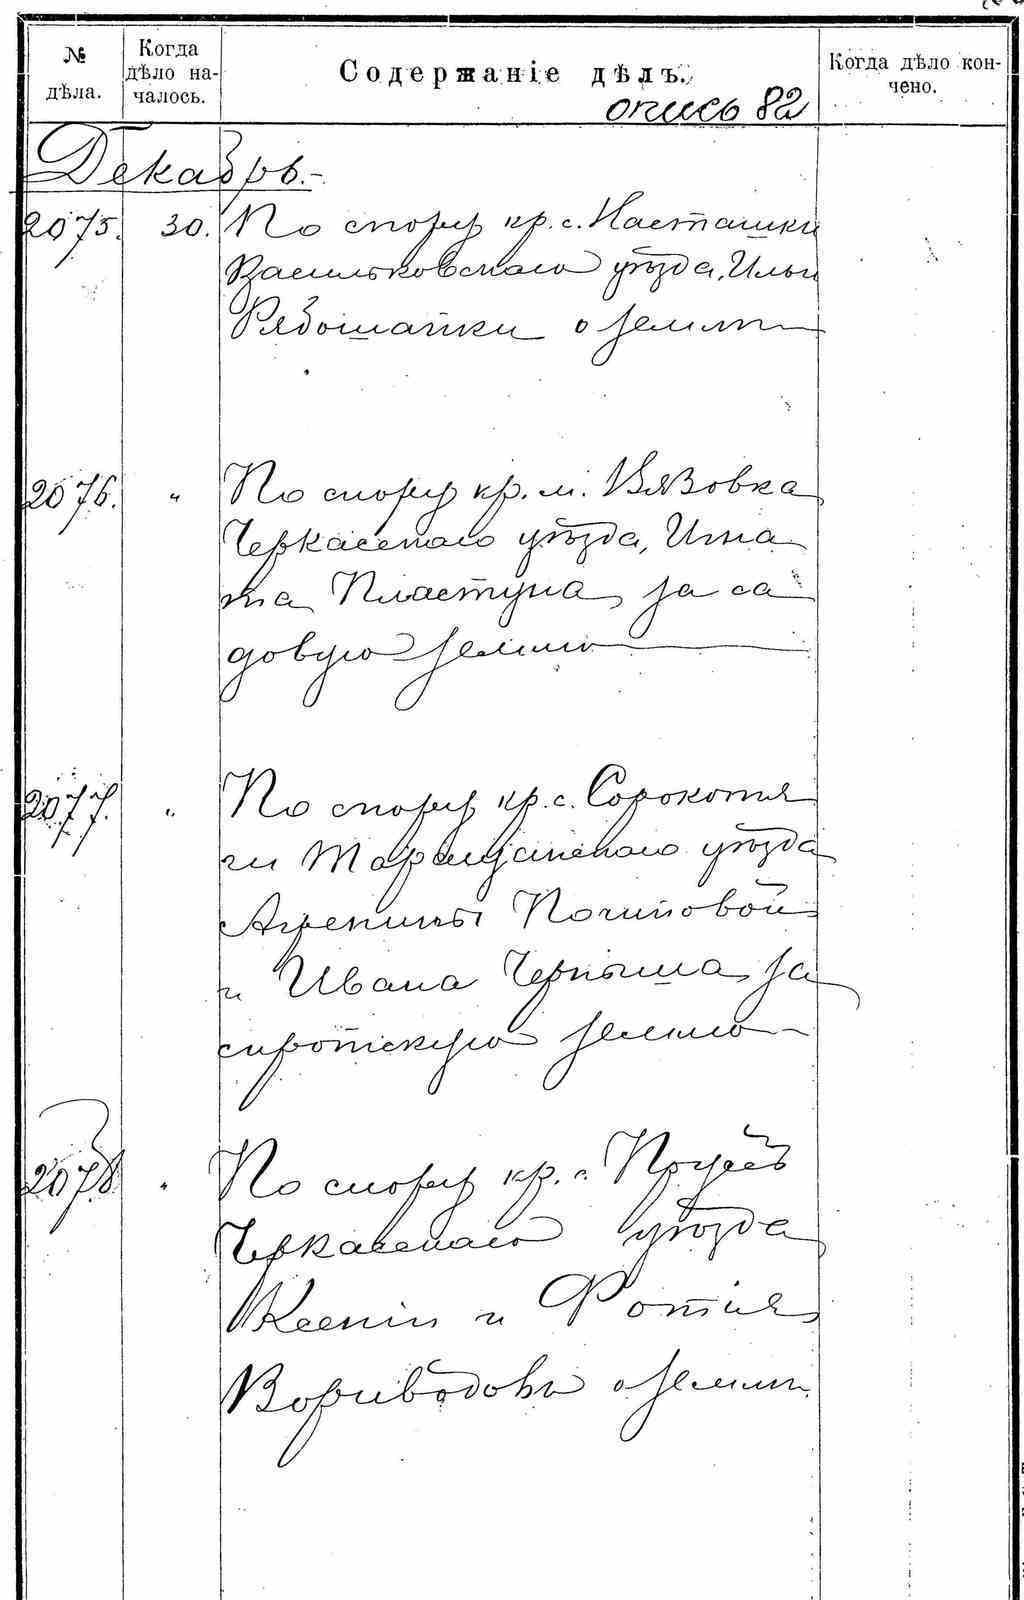 № дѣла.
Когда дѣло на-
чалось.
Содержаніе дѣлъ.
Когда дѣло кон-
чено.
опись 82
Декабрь.-
2075. 30. По спору кр. с. Насташки
Васильковскаго уѣзда, Ильи
Рябошапки о землѣ
2076. " По спору кр. м. Вязовка
Черкасскаго уѣзда, Игна
та Пластуна, за са
довую землю
2077. " По спору кр. с. Сорокотя
ги Таращанскаго уѣзда
Агрепины Почиповой
и Ивана Черныша, за
сиротскую землю
2078. " По спору кр. с.
Черкасскаго уѣзда
Ксеніи и Фотія
о землѣ